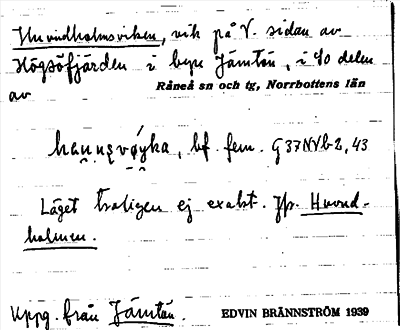 Huvudholmsviken, vik på V. sidan av
Högsöfjärden i byn Jämtön, i SO delen
av
Råneå sn och tg, Norrbottens län
bf. fem. G37NVb2,43
Läget troligen ej exakt. Jfr. Huvud-
holmen.
Uppg. från Jämtön.
EDVIN BRÄNNSTRÖM 1939